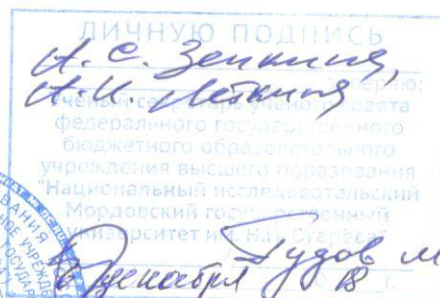 ЛИЧНУЮ ПОДПИСЬ
А. С. Зенкина,
А. И. Лёткина
заверяю:
Ученый секретарь ученого совета
федерального государственного
бюджетного образовательного
учреждения высшего образования
"Национальный исследовательский
Мордовский государственный
университет им. Н.П. Огарёва"
Дудов М
декабря 18 г.